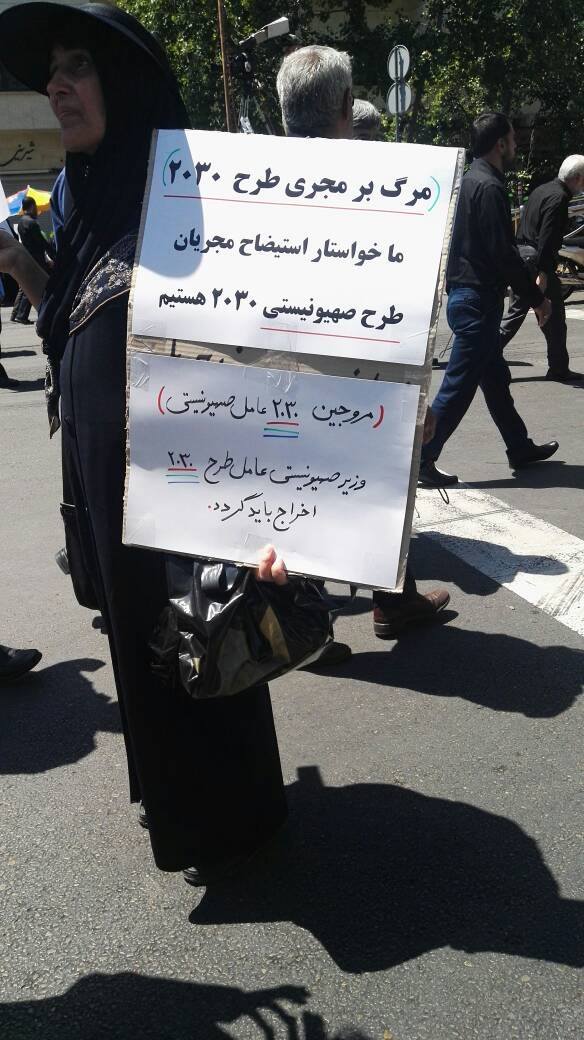 (مرگ بر مجری طرح ۲۰۳۰)
ما خواستار استیضاح مجریان
طرح صهیونیستی ۲۰۳۰ هستیم
(مروجین ۲۰۳۰ عامل صهیونیستی)
وزیر صهیونیستی عامل طرح ۲۰۳۰
اخراج باید گردد.